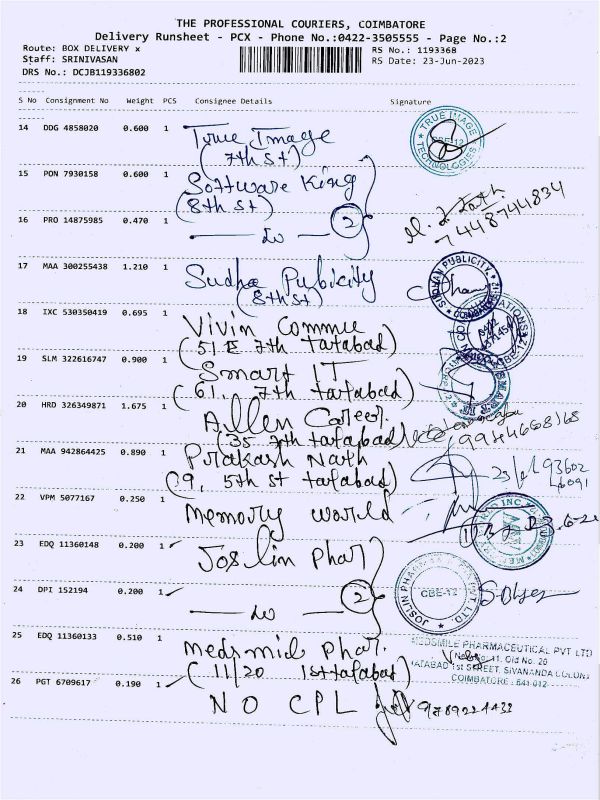 THE PROFESSIONAL COURIERS, COIMBATORE
Delivery Runsheet - PCX - Phone No.:0422-3505555 - Page No.:2
Route: BOX DELIVERY x RS No.: 1193368
Staff: SRINIVASAN RS Date: 23-Jun-2023
DRS No.: DCJB119336802
S No Consignment No Weight PCS Consignee Details Signature
14 DDG 4858020 0.600 1 True Image
(7th St)
TRUE IMAGE TECHNOLOGIES CBE-12
15 PON 7930158 0.600 1 Software King
(8th St)
16 PRO 14875985 0.470 1 do 2
7448744834
17 MAA 300255438 1.210 1 Sudha Pubicity
(8th St)
PUBLICITY
18 IXC 530350419 0.695 1 Vivin Commu
(51 E 7th Tatabad)
19 SLM 322616747 0.900 1 Smart IT
(61, 7th Tatabad)
20 HRD 326349871 1.675 1 Allen Career.
(35 7th Tatabad)
21 MAA 942864425 0.890 1 Prakash Nath
(9, 5th St Tatabad)
22 VPM 5077167 0.250 1 Memory World
23 EDQ 11360148 0.200 1 Joslin Phar
24 DPI 152194 0.200 1 do 2
CBE-12
25 EDQ 11360133 0.510 1 Medsmil Phar.
(11/20 1st Tatabad)
MEDSMILE PHARMACEUTICAL PVT LTD
New No: 11, Old No. 20
TATABAD 1st STREET, SIVANANDA COLONY
COIMBATORE - 641 012
26 PGT 6709617 0.190 1 NO CPL 9789224432